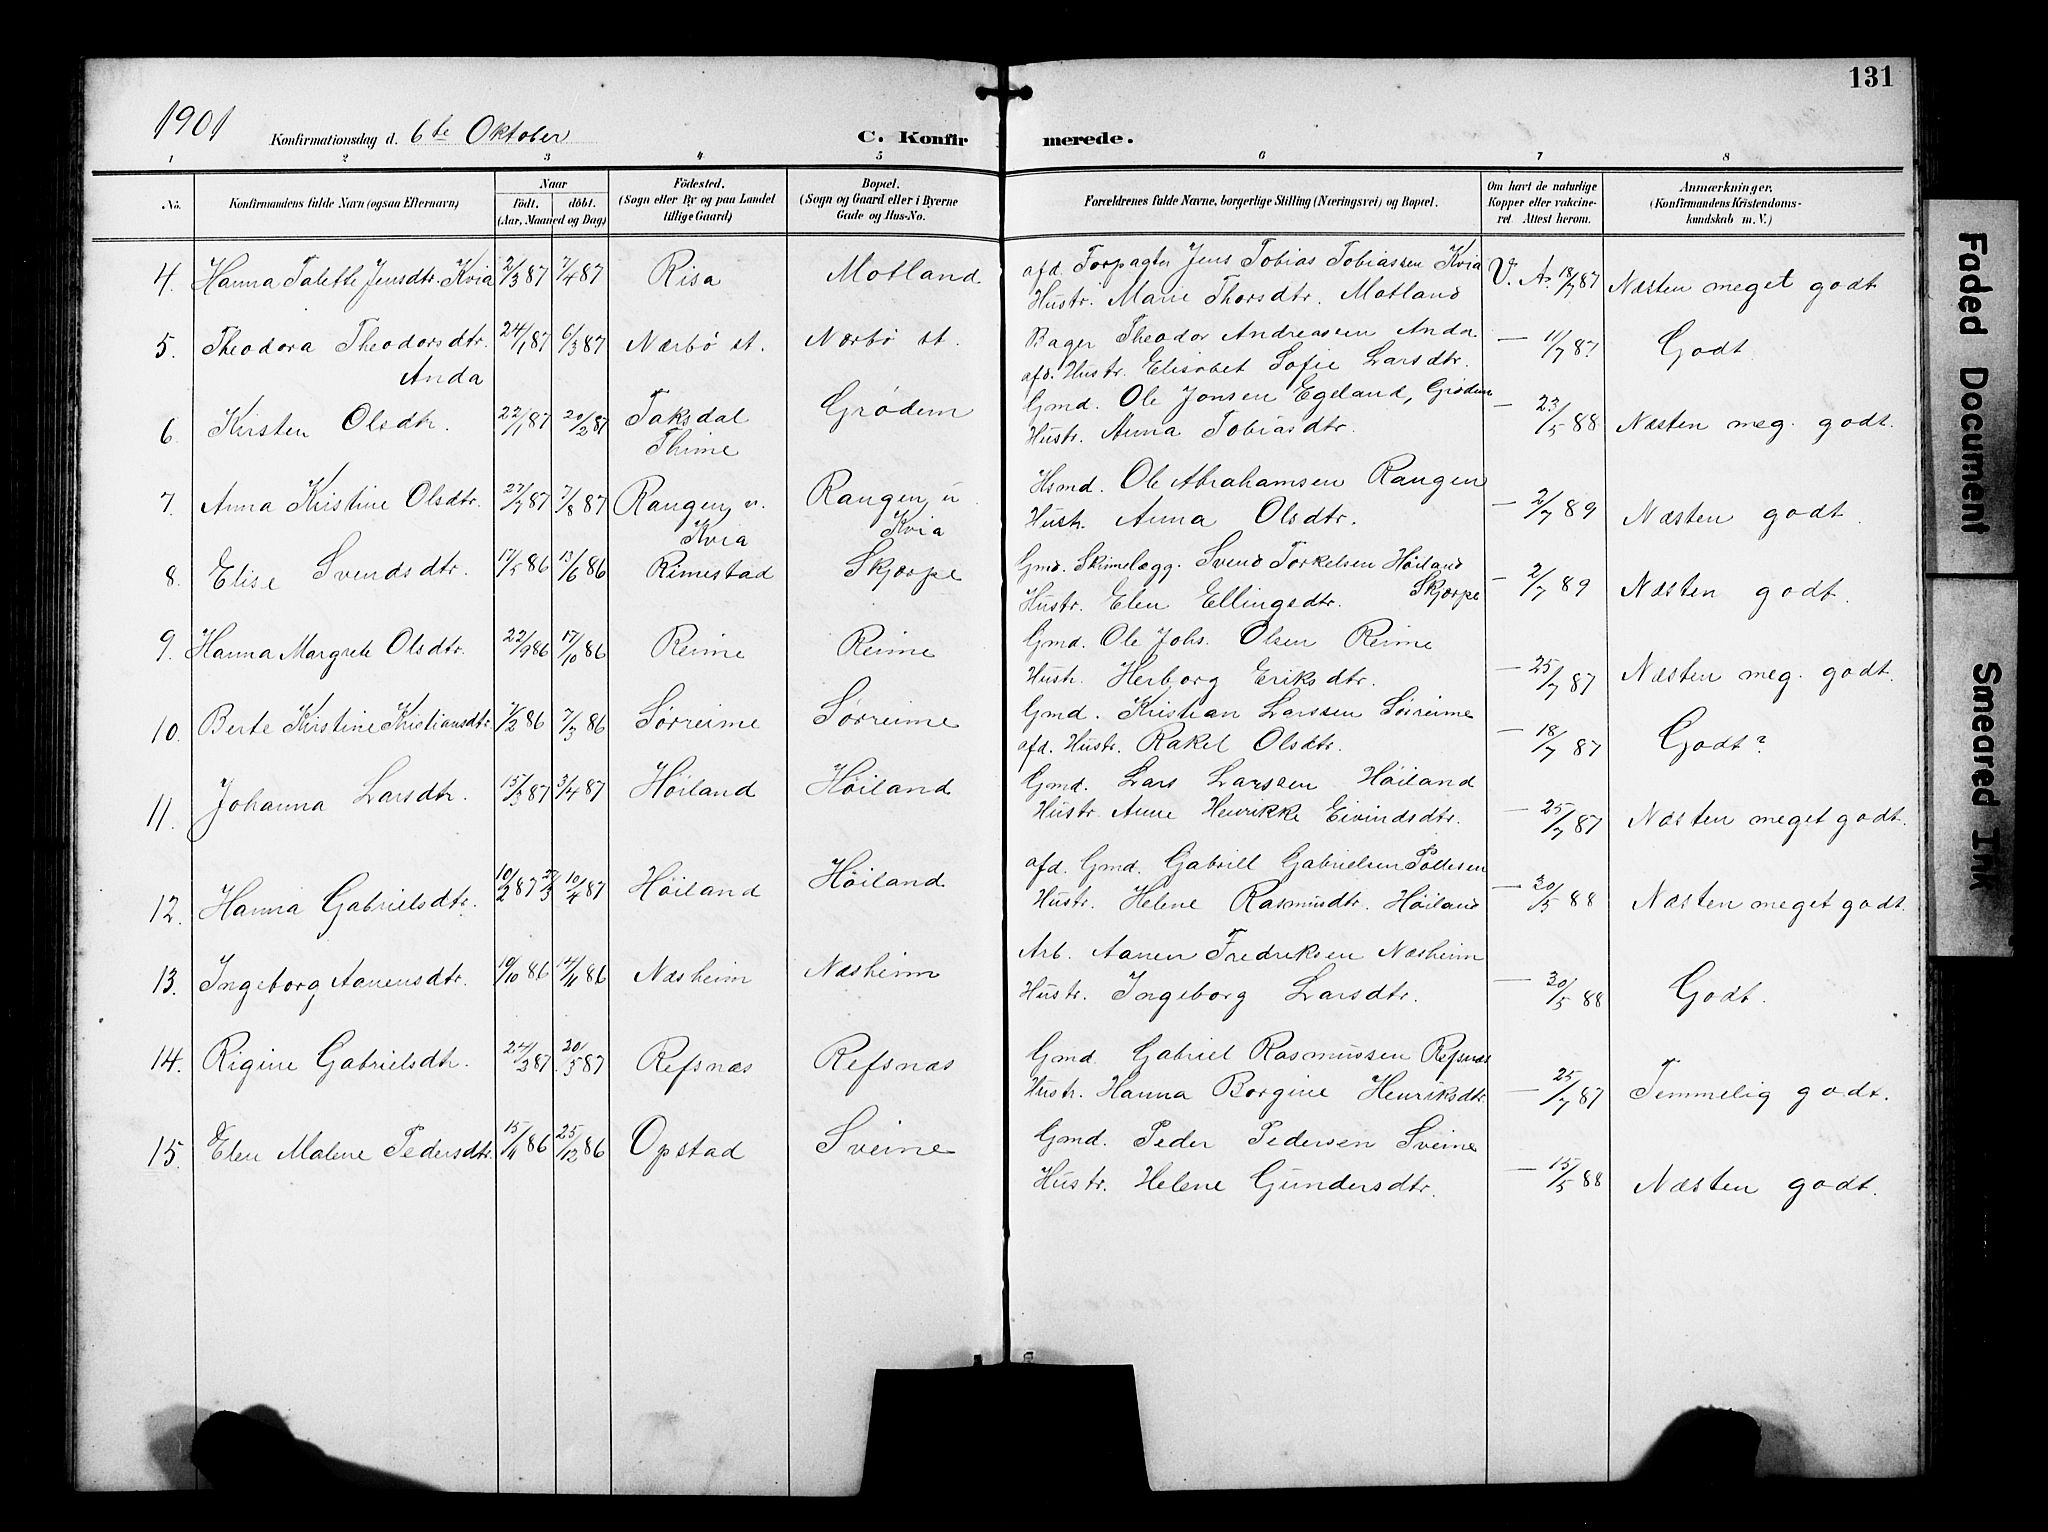 131
1901 Konfirmationsdag d. 6te Oktober C. Konfirmerede.
1 2 3 4 5 6 7 8
No. Konfirmandens fulde Navn (ogsaa Efternavn) Naar födt. döbt. (Aar, Maaned og Dag) Födested. (Sogn eller By og paa Landet tillige Gaard) Bopæl. (Sogn og Gaard eller i Byerne Gade og Hus-No. Forældrenes fulde Navne, borgerlige Stilling (Næringsvei) og Bopæl. Om havt de naturlige Kopper eller vaccineret. Attest herom. Anmærkninger. (Konfirmandens Kristendomskundskab m. V.)
4. Hanna Talette Jensdtr. Kvia 2/3 87 7/4 87 Risa Motland afd. Forpagter Jens Tobias Tobiassen Kvia
Hustr. Marie Thorsdtr. Motland V. A. 18/7 87 Næsten meget godt
5. Theodora Theodorsdtr. 24/1 87 6/3 87 Nærbö st. Nærbö st. Bager Theodor Andreassen Anda
Anda afd. Hustr. Elisabet Sofie Larsdtr. — 11/7 87 Godt
6. Kirsten Olsdtr. 22/1 87 20/2 87 Taksdal Grødem Gmd. Ole Jonsen Egeland, Grødem
Thime Hustr. Anna Tobiasdtr. — 23/5 88 Næsten meg. godt.
7. Anna Kristine Olsdtr. 27/7 87 7/8 87 Rangen, u. Rangen, u Hsmd. Ole Abrahamsen Rangen
Kvia Kvia Hustr. Anna Olsdtr. — 2/7 89 Næsten godt.
8. Elise Svendsdtr. 17/5 86 13/6 86 Rimestad Skjærpe Gmd. Skinnelægg. Svend Torkelsen Høiland
Hustr. Elen Ellingsdtr. Skjærpe — 2/7 89 Næsten godt.
9. Hanna Margrete Olsdtr. 22/9 86 17/10 86 Reime Reime Gmd. Ole Johs. Olsen Reime
Hustr. Herborg Eriksdtr. — 25/7 87 Næsten meg. godt.
10. Berte Kristine Kristiansdtr. 7/2 86 7/3 86 Sørreime Sørreime Gmd. Kristian Larssen Sörreime
afd. Hustr. Rakel Olsdtr. — 18/7 87 Godt?
11. Johanna Larsdtr. 15/3 87 3/4 87 Høiland Høiland Gmd. Lars Larssen Høiland
Hustr. Anne Henrikke Eivindsdtr. — 25/7 87 Næsten meget godt.
12. Hanna Gabrielsdtr. 10/2 87 10/4 87 Høiland Høiland afd. Gmd. Gabriel Gabrielsen
Hustr. Helene Rasmusdtr. Høiland — 30/5 88 Næsten meget godt.
13. Ingeborg Aanensdtr. 19/10 86 14/11 86 Næsheim Næsheim Arb. Aanen Fredriksen Næsheim
Hustr. Ingeborg Larsdtr. — 30/5 88 Godt.
14. Rigine Gabrielsdtr. 24/3 87 20/5 87 Refsnæs Refsnæs Gmd. Gabriel Rasmussen Refsnæs
Hustr. Hanna Borgine Henriksdtr. — 25/7 87 Temmelig godt.
15. Elen Malene Pedersdtr. 15/11 86 25/12 86 Opstad Sveine Gmd. Peder Pedersen Sveine
Hustr. Helene Gundersdtr. — 15/5 88 Næsten godt.
Faded Document
Smeared Ink